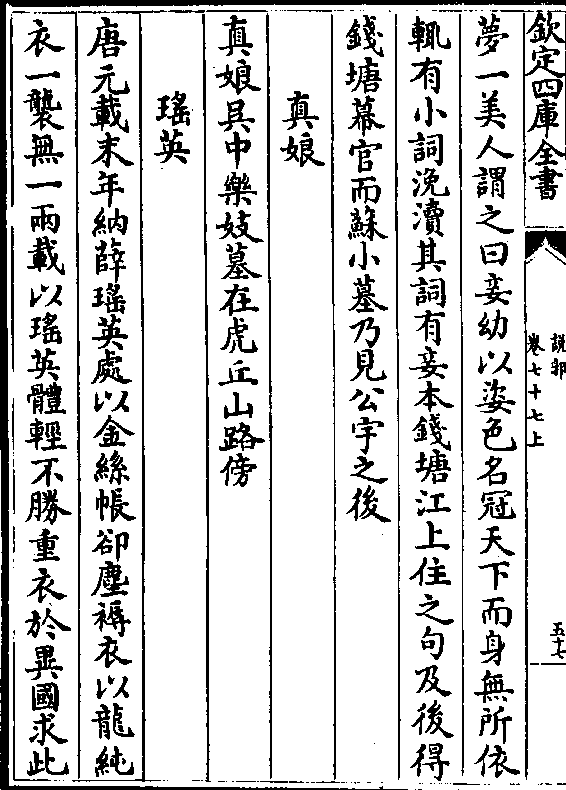 欽定四庫全書
說郛
卷七十七上
五十七
夢一美人謂之曰妾幼以姿色名冠天下而身無所依
輒有小詞浼瀆其詞有妾本錢塘江上住之句及後得
錢塘幕官而蘇小墓乃見公宇之後
真娘
真娘吴中樂妓墓在虎丘山路傍
瑤英
唐元載末年納薛瑤英處以金絲帳卻塵褥衣以龍純
衣一襲無一兩載以瑤英體輕不勝重衣於異國求此